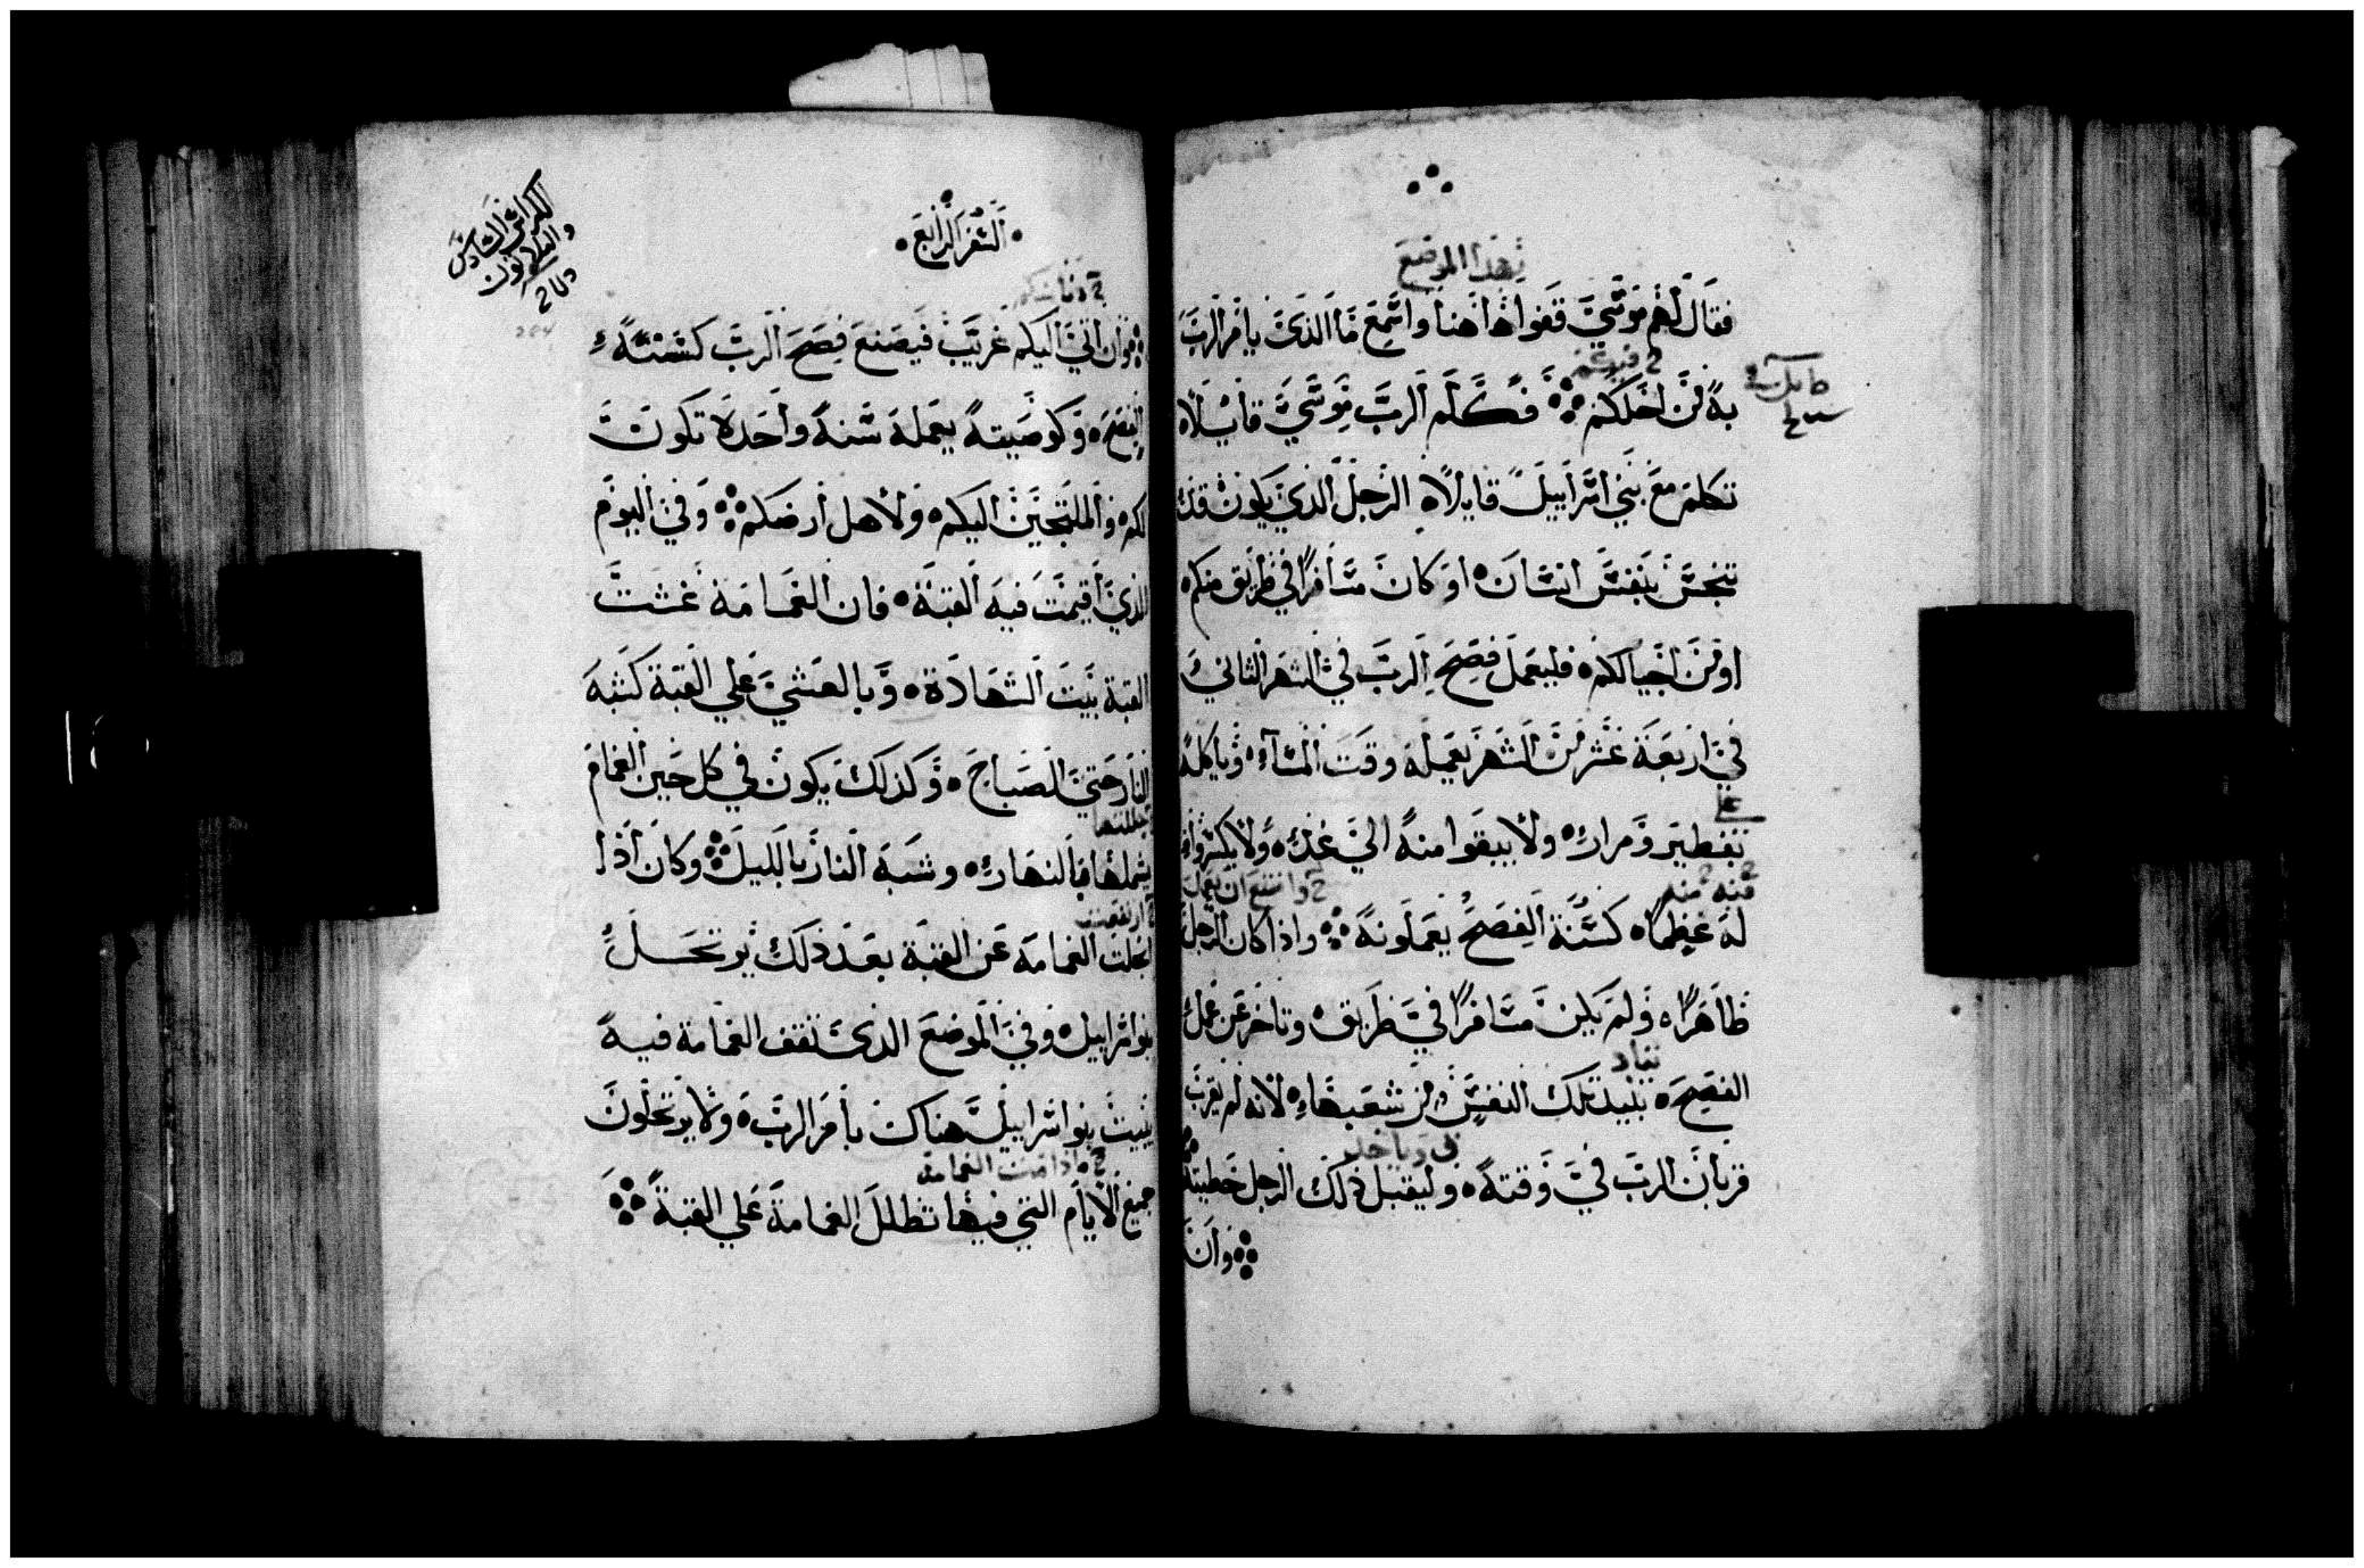 بهذا الموضع
فقال لهم موسي قفوا هاهنا واسمع ما الذي يامر الرب
به من اجلكم فكلم الرب موسي قايلا
تكلم مع بني اسراييل قايلاً الرجل الذي يكون قد
تنجس بنفس انسان او كان مسافراً في طريق منكم
او من اجيالكم فليعمل فصح الرب في الشهر الثاني
في اربعة عشر من الشهر يعمله وقت المسآء وياكله
علي
بفطير ومرار ولا يبقوا منه الي غد ولا يكسروا
2 منه 2 وامتنع ان يعمل
له عظماً كسنة الفصح يعملونه واذا كان الرجل
ظاهراً ولم يكن مسافراً في طريق وتاخر عن عمل
تباد
الفصح تبيد تلك النفس من شعبها لانه لم يقرب
قربان الرب في وقته وليقبل ذلك الرجل خطيته
وان
السفر الرابع
الكراس السادس
والثلاثون
وان اتي اليكم غريب فيصنع فصح الرب كسنة
الفصح وكوصيته يعمله سنة واحدة تكون
لكم والملتجين اليكم ولاهل ارضكم وفي اليوم
الذي اقيمت فيه القبة فان الغمامة غشت
القبة بيت الشهادة وبالعشي علي القبة كشبه
النار حتي الصباح وكذلك يكون في كل حين الغمام
تظللها
يشملها بالنهار وشبه النار بالليل وكان اذا
2 ارتفعت
انجلت الغمامة عن القبة بعد ذلك يرتحل
بنو اسراييل وفي الموضع الذي تقف الغمامة فيه
يبيت بنو اسراييل هناك بامر الرب ولا يرتحلون
الغمامة
جميع الايام التي فيها تظلل الغمامة علي القبة